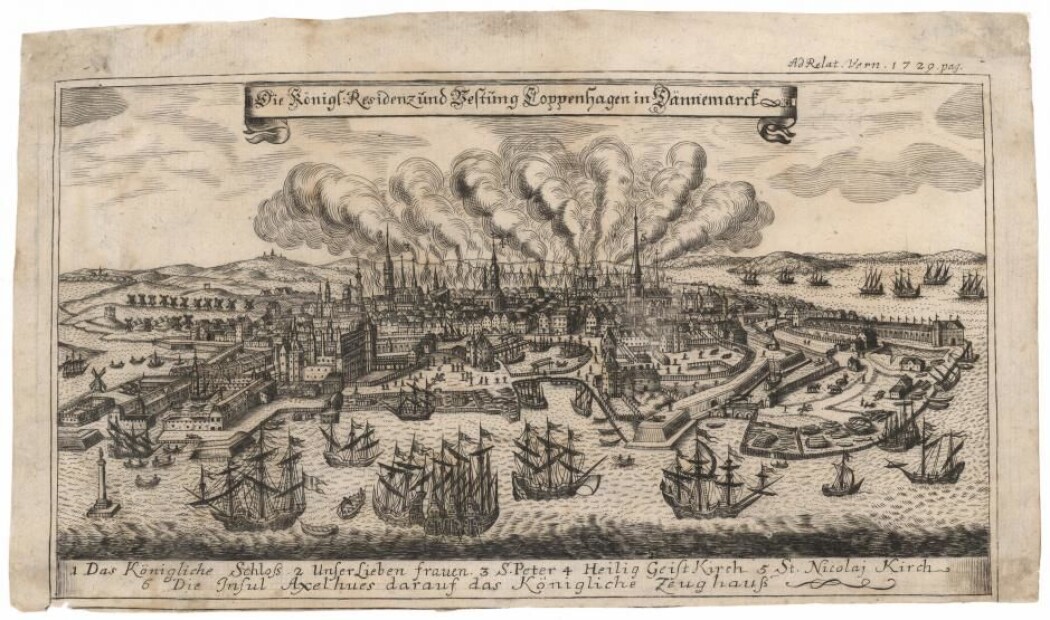 Ad Relat. Vern. 1729. pag.
Die Königl: Residenz und Vestung Coppenhagen in Dännemarck
1 Das Königliche Schloß 2 Unser Lieben frauen. 3 S. Peter 4 Heilig Geist Kirch 5 St. Nicolaj Kirch
6 Die Insul Axelhues darauf das Königliche Zeughauß